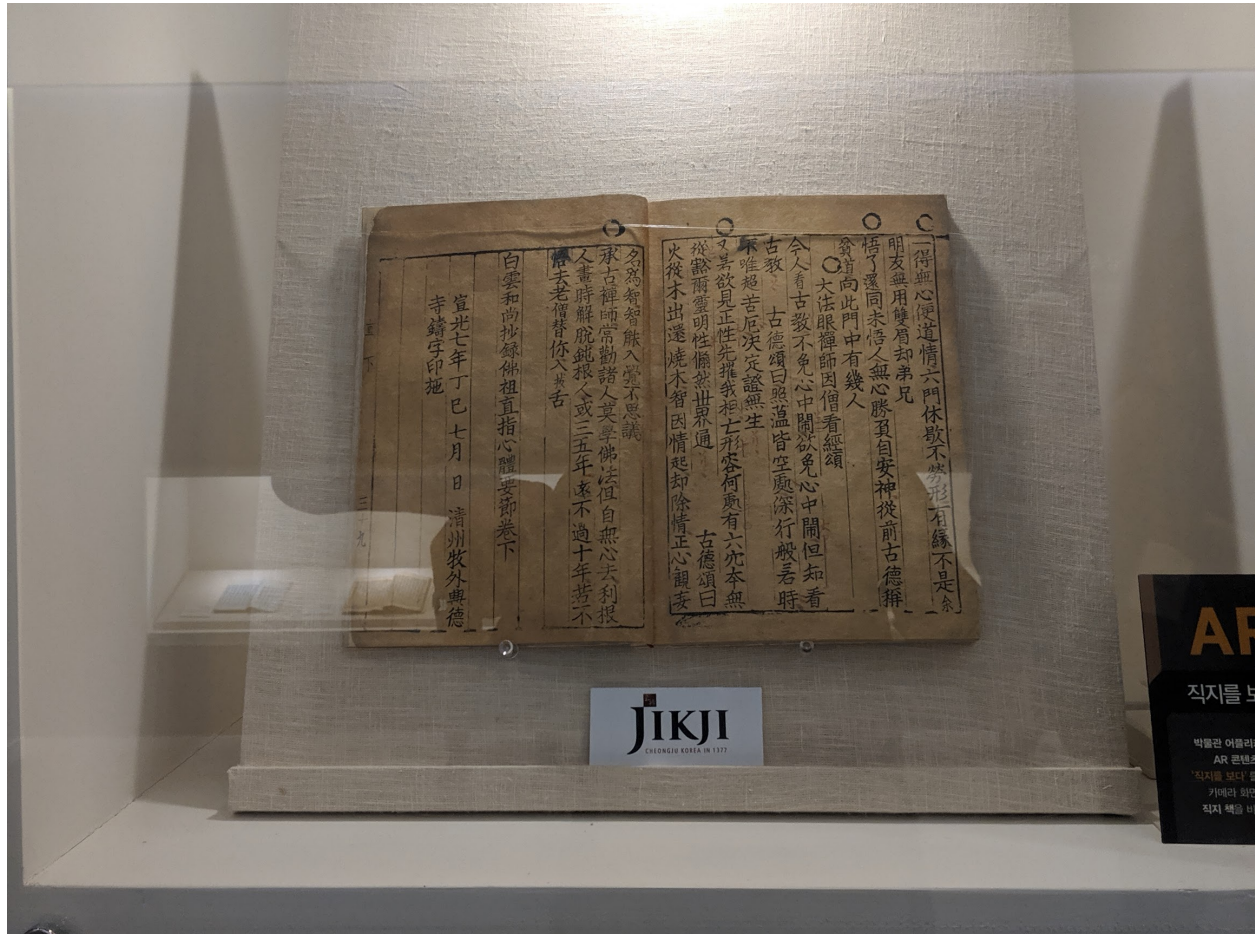 一得無心便道情六門休歇不勞形有緣不是余
明友無用雙眉却弟兄
悟了還同未悟人無心勝負自安神從前古德稱
貧道向此門中有幾人
大法眼禪師因僧看經頌
今人看古教不免心中鬧欲免心中鬧但知看
古教 古德頌曰照蕰皆空處深行般若時
不唯超苦厄決定證無生
又若欲見正性先摧我相亡形容何處有六宂本無
從豁爾靈明性翛然世界通 古德頌曰
火從木出還燒木智因情起却除情正心觀妄
名爲智智餗入毫不思議
承古禪師常勸諸人莫學佛法但自無心去利根
人畫時解脫鈍根人或三五年遠不過十年若不
悟去老僧替你入拔舌
白雲和尚抄錄佛祖直指心體要節卷下
宣光七年丁巳七月 日 清州牧外興德
寺鑄字印施
JIKJI
CHEONGJU KOREA IN 1377
AR
직지를
박물관
AR 콘텐츠
'직지를 보다'
카메라 화면
직지 책을